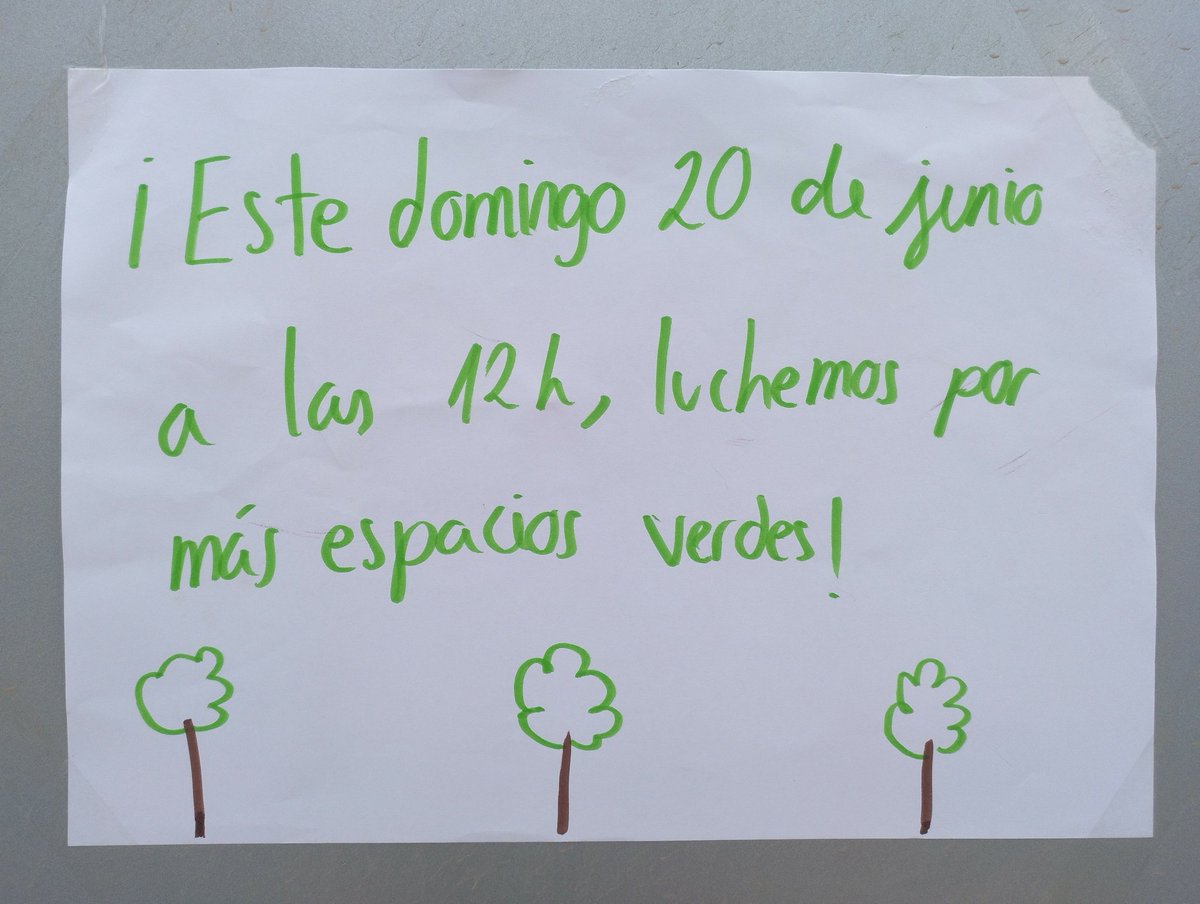 ¡Este domingo 20 de junio
a las 12h, luchemos por
más espacios verdes!